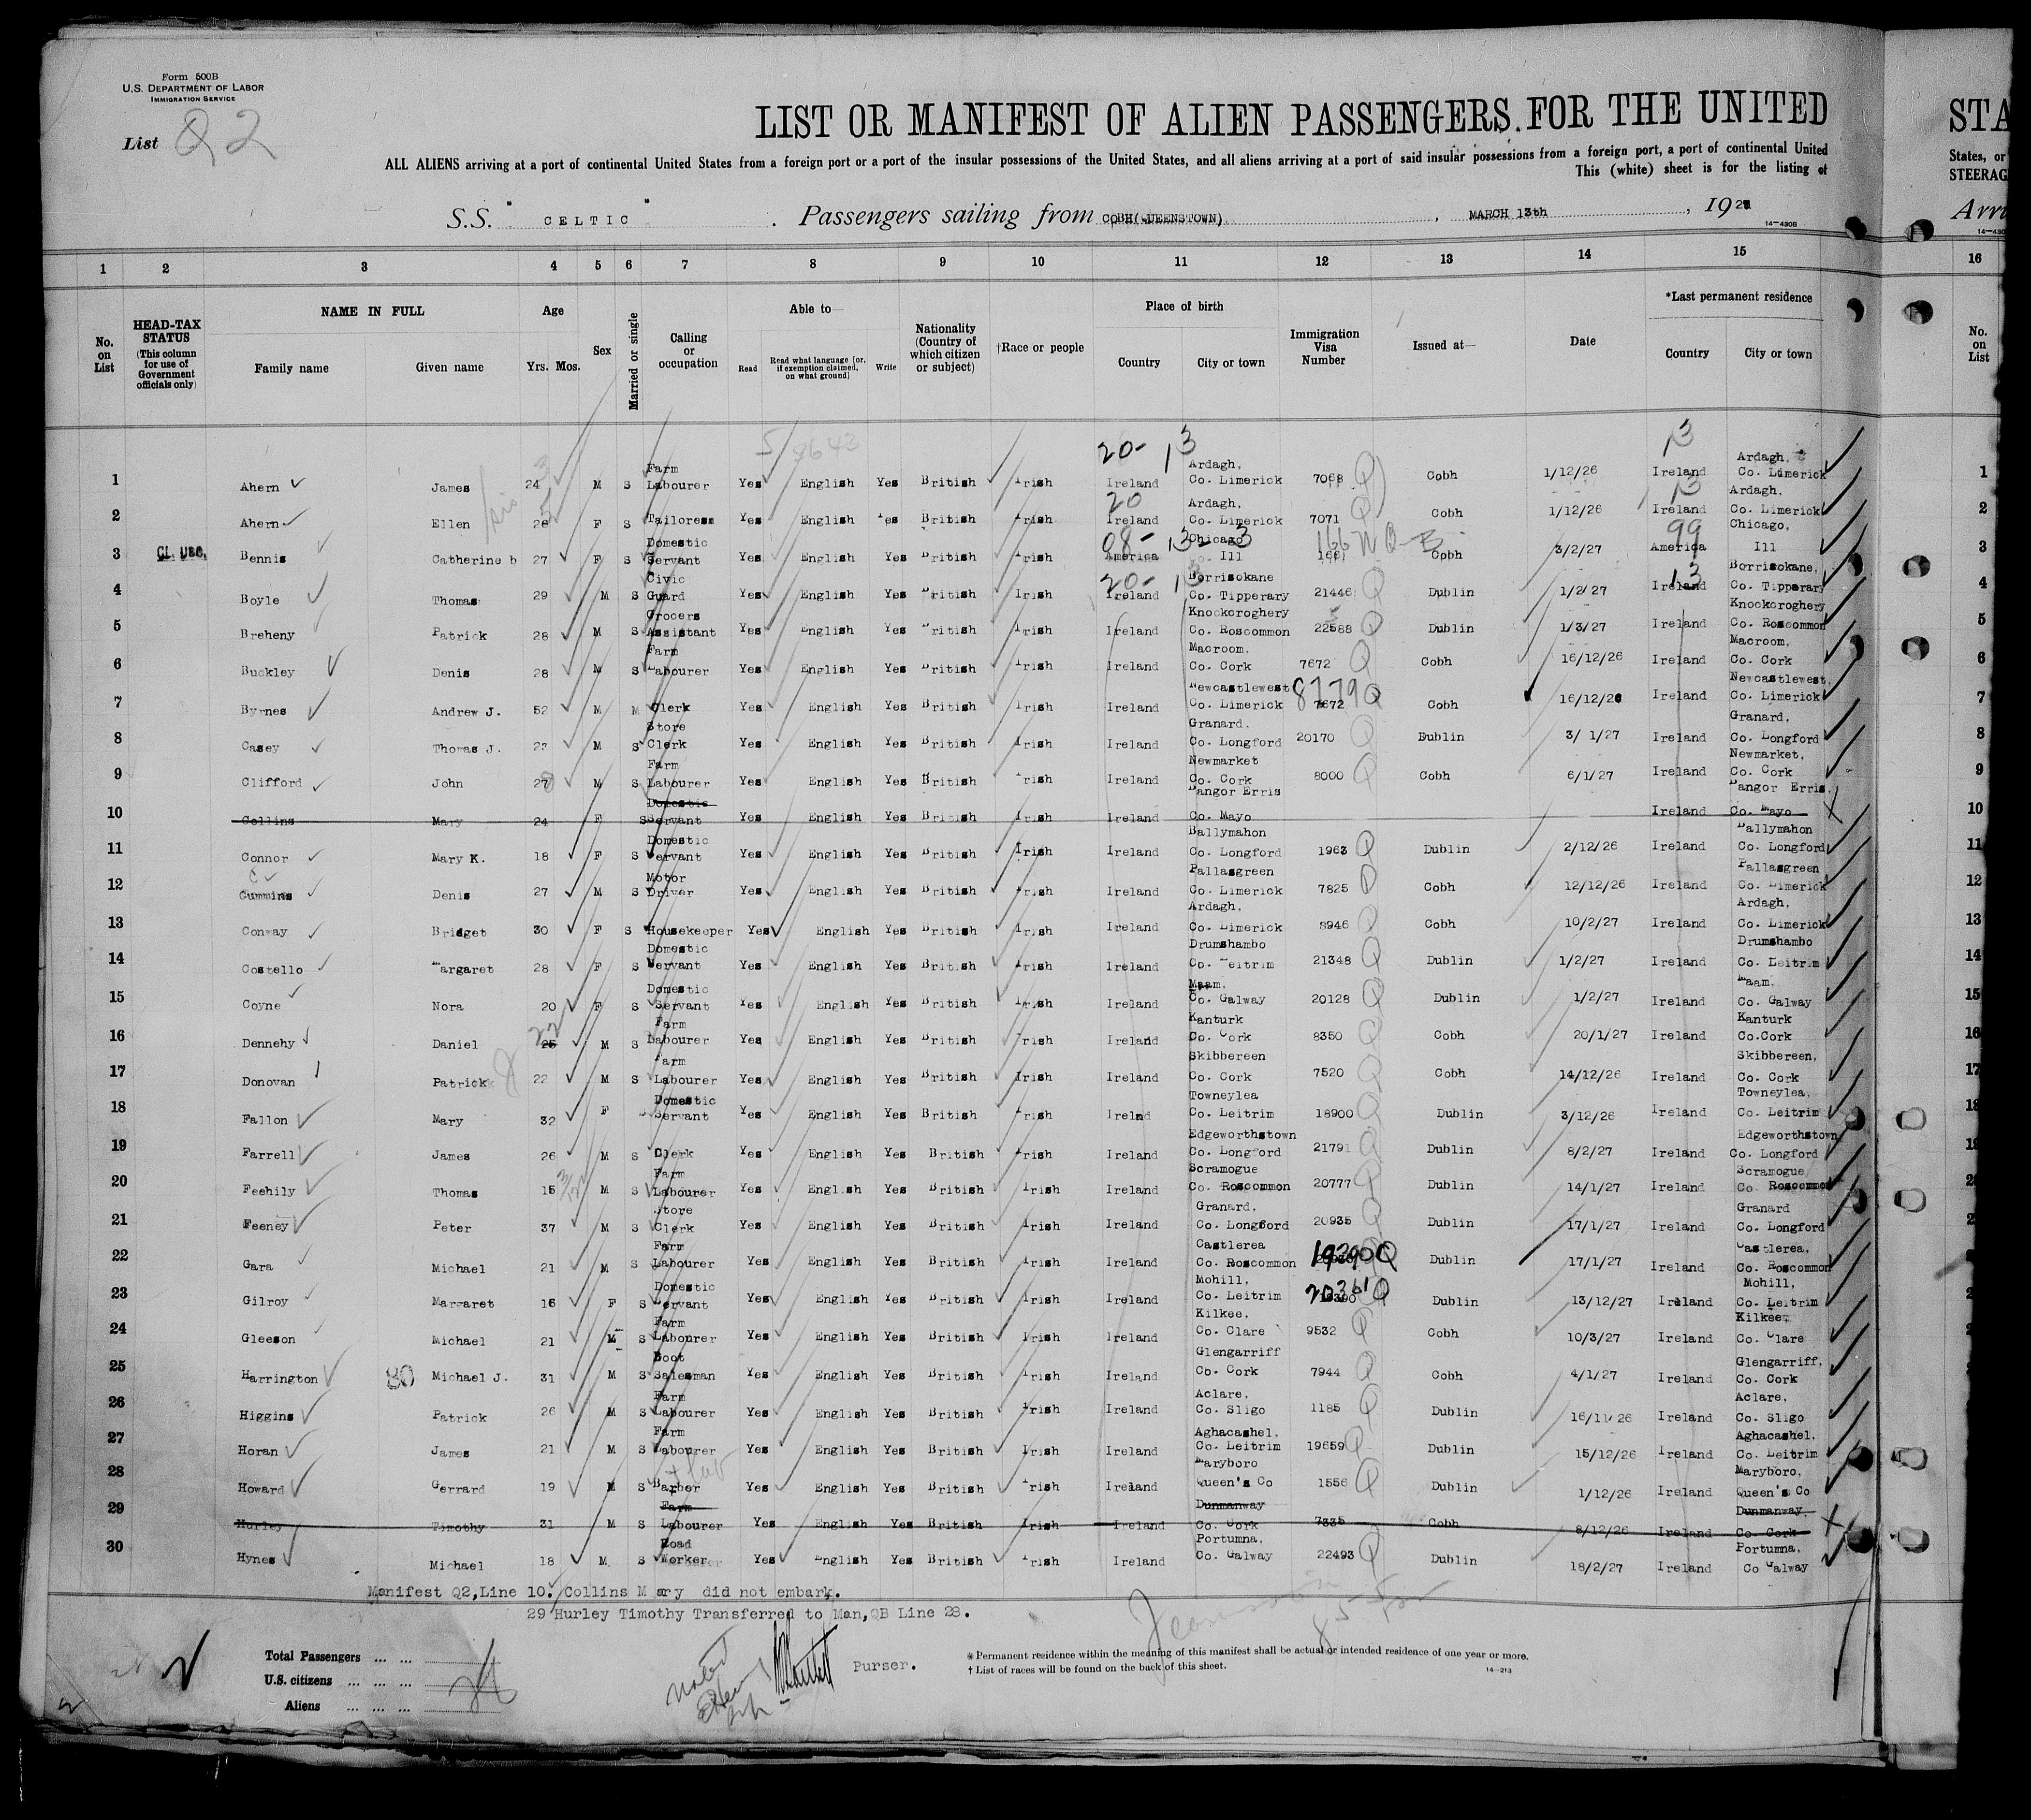 Form 500B
U.S. DEPARTMENT OF LABOR
IMMIGRATION SERVICE
List Q2
LIST OR MANIFEST OF ALIEN PASSENGERS FOR THE UNITED
STA
ALL ALIENS arriving at a port of continental United States from a foreign port or a port of the insular possessions of the United States, and all aliens arriving at a port of said insular possessions from a foreign port, a port of continental United
States, or
This (white) sheet is for the listing of
STEERAG
S.S. " CELTIC " . Passengers sailing from COBH(QUEENSTOWN), MARCH 13th, 1927
Arri
14-430B
1 2 3 4 5 6 7 8 9 10 11 12 13 14 15 16
No. on List
HEAD-TAX STATUS (This column for use of Government officials only)
NAME IN FULL
Family name Given name
Age Yrs. Mos.
Sex
Married or single
Calling or occupation
Able to—
Read Read what language (or, if exemption claimed, on what ground) Write
Nationality (Country of which citizen or subject)
†Race or people
Place of birth
Country City or town
Immigration Visa Number
Issued at—
Date
*Last permanent residence
Country City or town
No. on List
1 Ahern James 24 M S Farm Labourer Yes English Yes British Irish Ireland Ardagh, Co. Limerick 7068 Q Cobh 1/12/26 Ireland Ardagh, Co. Limerick 1
2 Ahern Ellen F S Tailoress Yes English Yes British Irish Ireland Ardagh, Co. Limerick 7071 Q Cobh 1/12/26 Ireland Ardagh, Co. Limerick 2
3 Bennis Catherine b 27 F S Domestic Servant Yes English Yes British Irish America Chicago Ill 166 NQ-3 Cobh 3/2/27 America Chicago, Ill 3
4 Boyle Thomas 29 M S Civic Guard Yes English Yes British Irish Ireland Borrisokane Co. Tipperary 21446 Q Dublin 1/2/27 Ireland Borrisokane, Co. Tipperary 4
5 Breheny Patrick 28 M S Grocers Assistant Yes English Yes British Irish Ireland Knockcroghery Co. Roscommon 22588 Q Dublin 1/3/27 Ireland Knockcroghery Co. Roscommon 5
6 Buckley Denis 28 M S Farm Labourer Yes English Yes British Irish Ireland Macroom, Co. Cork 7672 Q Cobh 16/12/26 Ireland Macroom, Co. Cork 6
7 Byrnes Andrew J. 52 M M Clerk Yes English Yes British Irish Ireland Newcastlewest Co. Limerick 8779 Q 7672 Cobh 16/12/26 Ireland Newcastlewest, Co. Limerick 7
8 Casey Thomas J. M S Store Clerk Yes English Yes British Irish Ireland Granard, Co. Longford 20170 Q Dublin 3/1/27 Ireland Granard, Co. Longford 8
9 Clifford John 27 M S Farm Labourer Yes English Yes British Irish Ireland Newmarket Co. Cork 8000 Q Cobh 6/1/27 Ireland Newmarket, Co. Cork 9
10 Collins Mary 24 F S Domestic Servant Yes English Yes British Irish Ireland Bangor Erris Co. Mayo Ireland Bangor Erris, Co. Mayo X 10
11 Connor Mary K. 18 F S Domestic Servant Yes English Yes British Irish Ireland Ballymahon Co. Longford 1963 Q Dublin 2/12/26 Ireland Ballymahon Co. Longford 11
12 Cummins Denis 27 M S Motor Driver Yes English Yes British Irish Ireland Pallasgreen Co. Limerick 7825 Q Cobh 12/12/26 Ireland Pallasgreen Co. Limerick 12
13 Conway Bridget 30 F S Housekeeper Yes English Yes British Irish Ireland Ardagh, Co. Limerick 8946 Q Cobh 10/2/27 Ireland Ardagh, Co. Limerick 13
14 Costello Margaret 28 F S Domestic Servant Yes English Yes British Irish Ireland Drumshambo Co. Leitrim 21348 Q Dublin 1/2/27 Ireland Drumshambo Co. Leitrim 14
15 Coyne Nora 20 F S Domestic Servant Yes English Yes British Irish Ireland Maam, Co. Galway 20128 Q Dublin 1/2/27 Ireland Maam, Co. Galway 15
16 Dennehy Daniel 25 22 M S Farm Labourer Yes English Yes British Irish Ireland Kanturk Co. Cork 8350 Q Cobh 20/1/27 Ireland Kanturk Co.Cork 16
17 Donovan Patrick 22 M S Farm Labourer Yes English Yes British Irish Ireland Skibbereen Co. Cork 7520 Q Cobh 14/12/26 Ireland Skibbereen, Co. Cork 17
18 Fallon Mary 32 F Domestic Servant Yes English Yes British Irish Irelnd Towneylea Co. Leitrim 18900 Q Dublin 3/12/26 Ireland Towneylea, Co. Leitrim 18
19 Farrell James 26 M S Clerk Yes English Yes British Irish Ireland Edgeworthstown Co. Longford 21791 Q Dublin 8/2/27 Ireland Edgeworthstown, Co. Longford
20 Feehily Thomas 15 M S Farm Labourer Yes English Yes British Irish Ireland Scramogue Co. Roscommon 20777 Q Dublin 14/1/27 Ireland Scramogue Co Roscommon
21 Feeney Peter 37 M S Store Clerk Yes English Yes British Irish Ireland Granard, Co. Longford 20935 Q Dublin 17/1/27 Ireland Granard Co. Longford
22 Gara Michael 21 M S Farm Labourer Yes English Yes British Irish Ireland Castlerea Co. Roscommon 19390 Q Dublin 17/1/27 Ireland Castlerea, Co. Roscommon
23 Gilroy Margaret 16 F S Domestic Servant Yes English Yes British Irish Ireland Mohill, Co. Leitrim 20361 Q Dublin 13/12/27 Ireland Mohill, Co. Leitrim
24 Gleeson Michael 21 M S Farm Labourer Yes English Yes British Irish Ireland Kilkee, Co. Clare 9532 Q Cobh 10/3/27 Ireland Kilkee, Co. Clare
25 Harrington 80 Michael J. 31 M S Boot Salesman Yes English Yes British Irish Ireland Glengarriff Co. Cork 7944 Q Cobh 4/1/27 Ireland Glengarriff, Co. Cork
26 Higgins Patrick 26 M S Farm Labourer Yes English Yes British Irish Ireland Aclare, Co. Sligo 1185 Q Dublin 16/11/26 Ireland Aclare, Co. Sligo
27 Horan James 21 M S Farm Labourer Yes English Yes British Irish Ireland Aghacashel, Co. Leitrim 19659 Q Dublin 15/12/26 Ireland Aghacashel, Co. Leitrim
28 Howard Gerrard 19 M S Barber Yes English Yes British Irish Ireland Maryboro Queen's Co 1556 Q Dublin 1/12/26 Ireland Maryboro, Queen's Co
29 Hurley Timothy 31 M S Farm Labourer Yes English Yes British Irish Ireland Dunmanway Co. Cork 7335 Cobh 8/12/26 Ireland Dunmanway, Co. Cork X
30 Hynes Michael 18 M S Road Worker Yes English Yes British Irish Ireland Portumna, Co. Galway 22493 Q Dublin 18/2/27 Ireland Portumna, Co Galway
Manifest Q2,Line 10. Collins Mary did not embark.
29 Hurley Timothy Transferred to Man,QB Line 28.
Total Passengers
U.S. citizens
Aliens
Purser.
* Permanent residence within the meaning of this manifest shall be actual or intended residence of one year or more.
† List of races will be found on the back of this sheet.
14-213